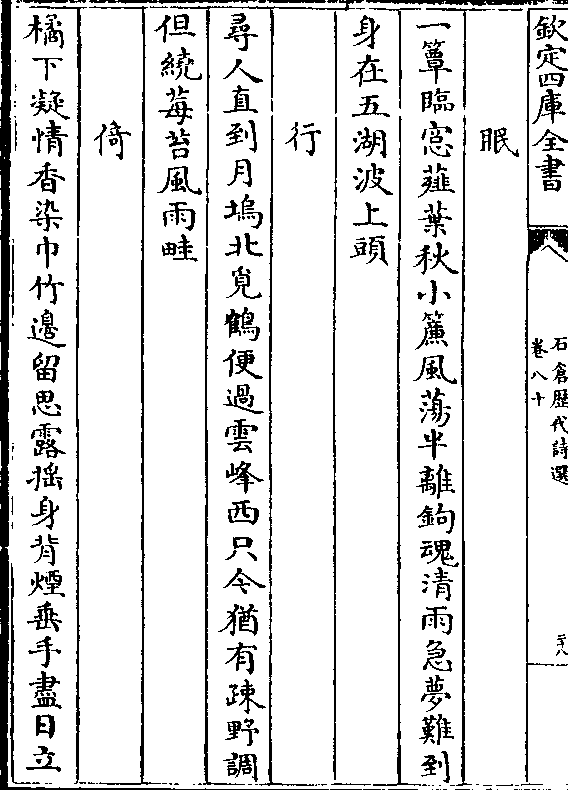 欽定四庫全書
石倉歴代詩選
卷八十
眠
一簟臨窓薤葉秋小簾風蕩半離鉤魂清雨急夢難到
身在五湖波上頭
行
尋人直到月塢北覓鶴便過雲峰西只今猶有疎野調
但繞莓苔風雨畦
倚
橘下凝情香染巾竹邊留思露揺身背煙垂手盡日立